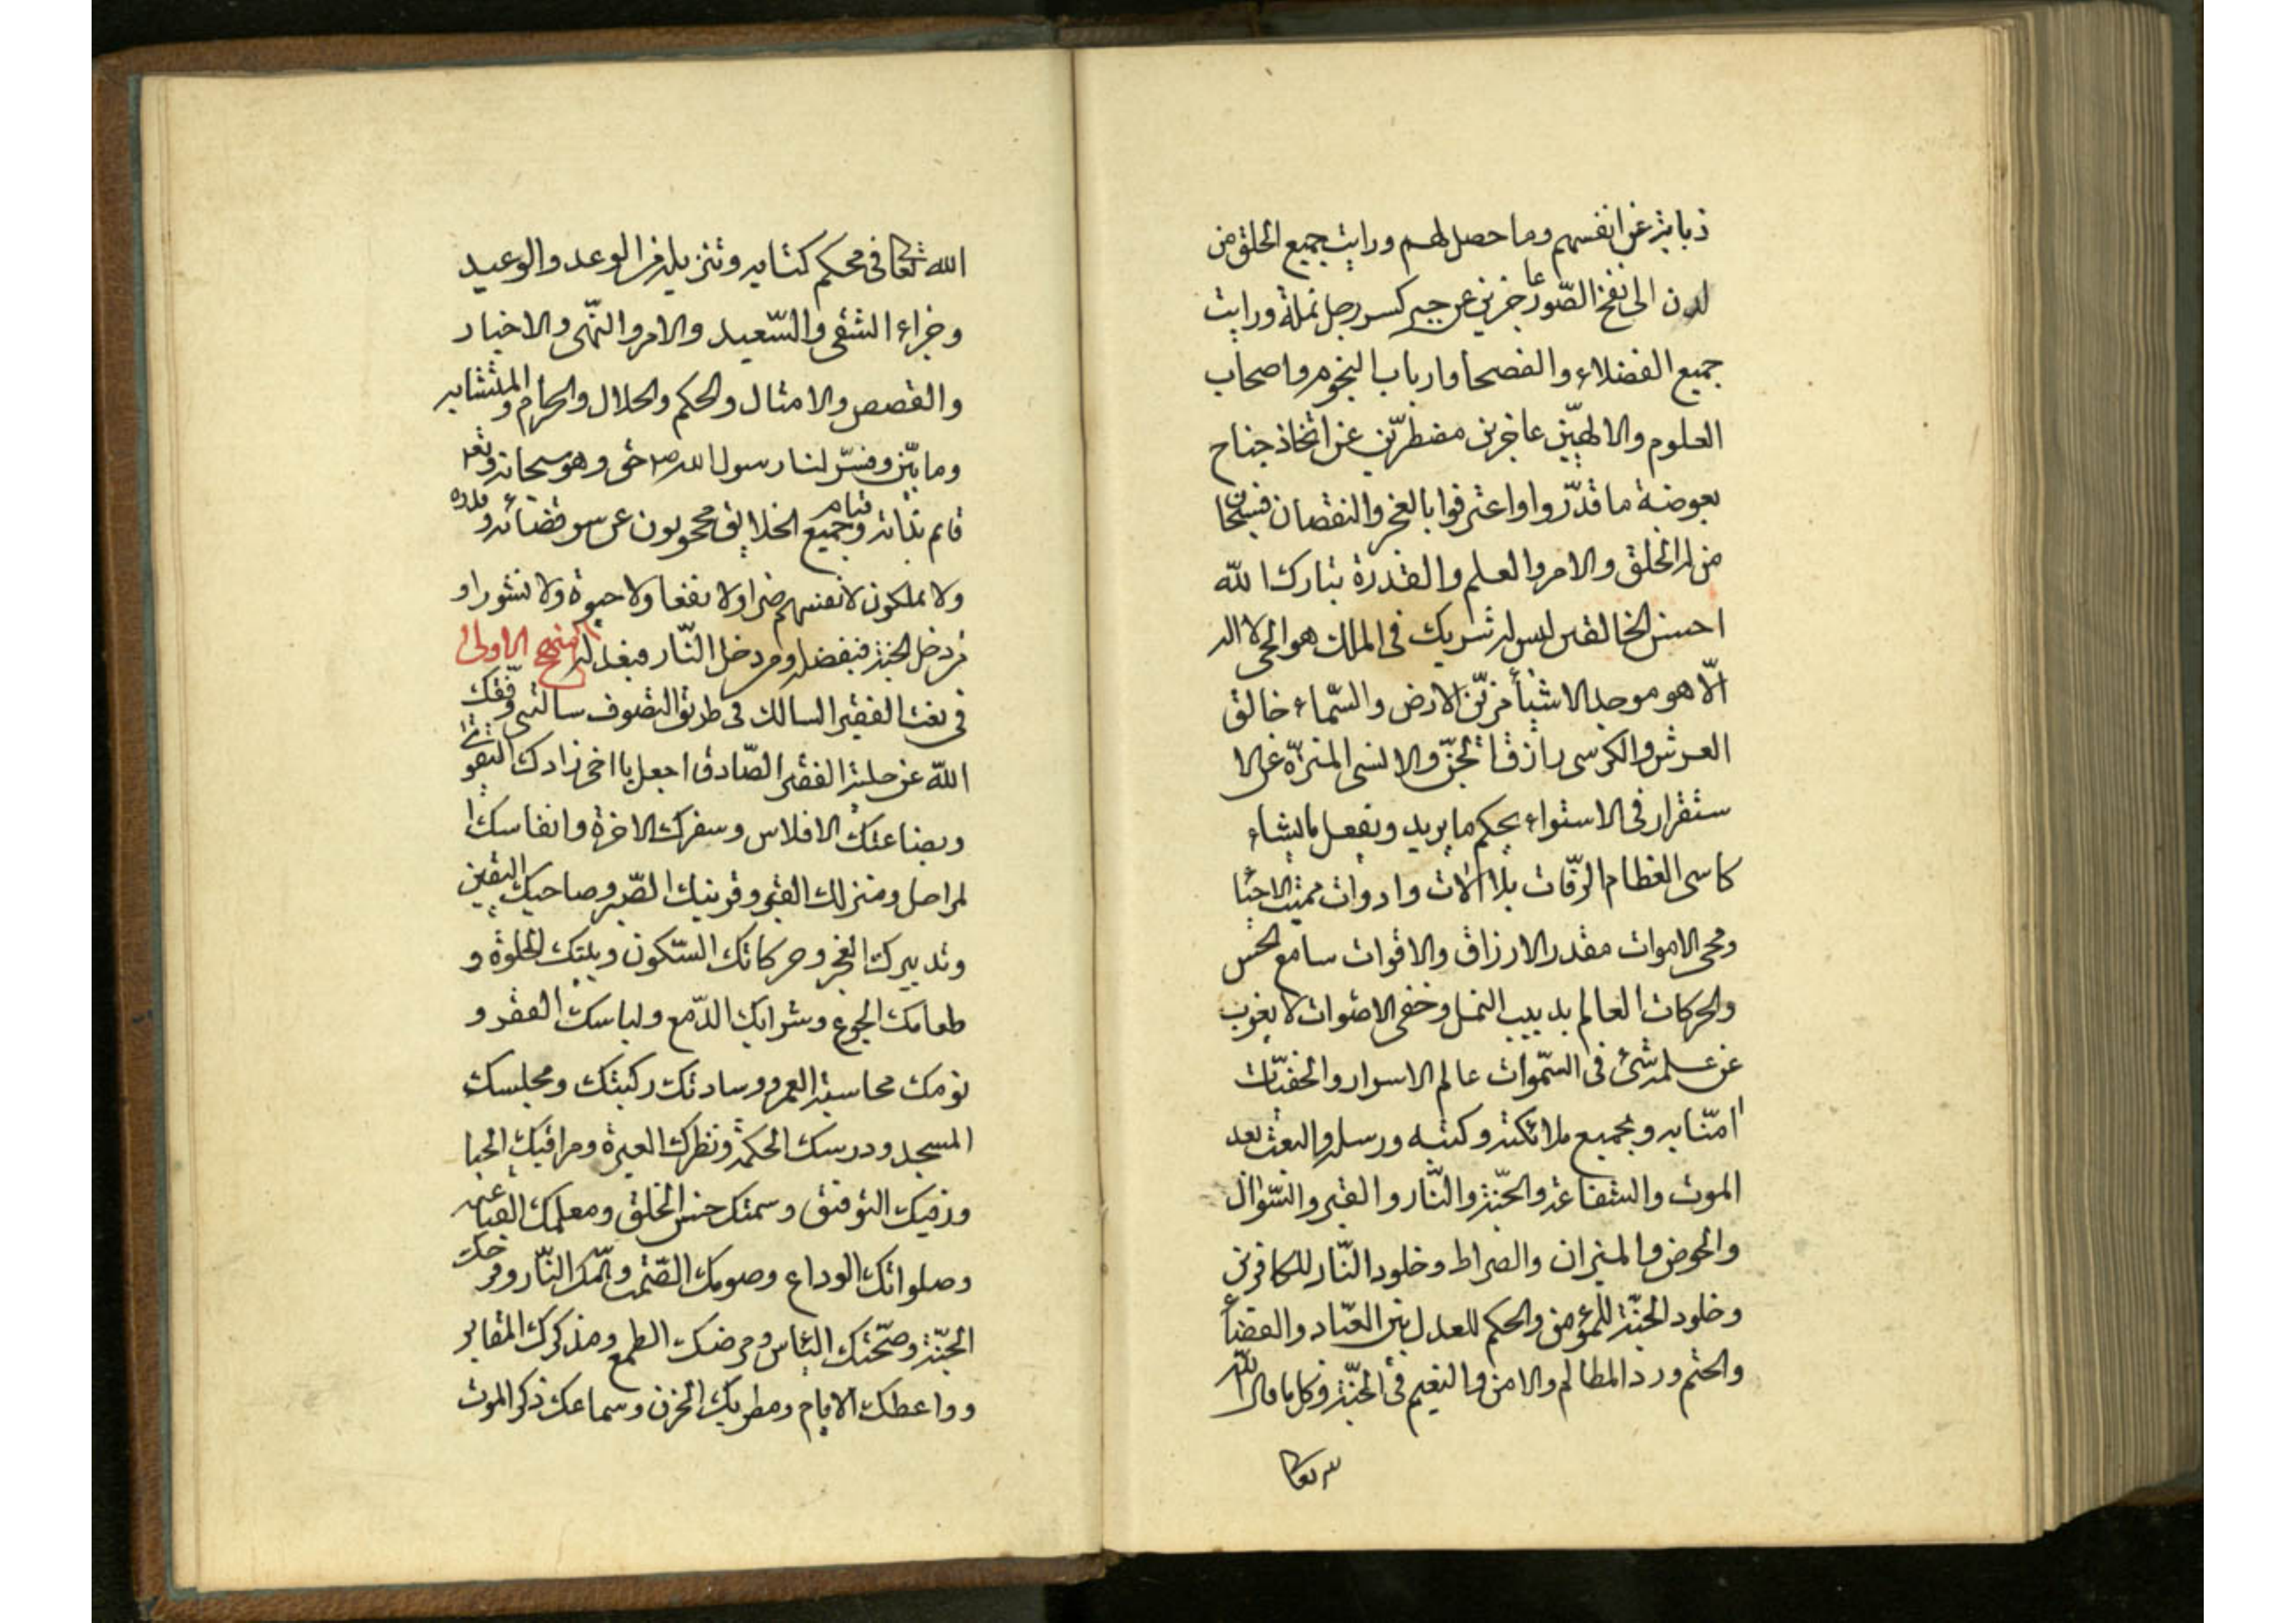 ذبابة عن انفسهم وما حصل لهم ورايت جميع الخلق من
لدن الى نفخ الصّور عاجزين عن جبر كسر رجل نملة ورايت
جميع الفضلاء والفصحا وارباب النجوم واصحاب
العلوم والالهيّين عاجزين مضطرّين عن اتخاذ جناح
بعوضة ما قدّروا واعترفوا بالعجز والنقصان فسبحان
من له الخلق والامر والعلم والقدرة تبارك الله
احسن الخالقين ليس له شريك فى الملك هو الحى لا اله
الّا هو موجد الاشيأ مزيّن الارض والسّماء خالق
العرش والكرسى رازق الجنّ والانسى المنزّه عن الا
ستقرار فى الاستواء يحكم ما يريد ويفعل ما يشاء
كاسى العظام الرّفات بلا آلات وادوات مميت الاحياء
ومحى الاموات مقدر الارزاق والاقوات سامع الحس
والحركات العالم بدبيب النمل وخفى الاصوات لا يعزب
عن علمه شئ فى السّموات عالم الاسرار والخفيّات
امنّا به وبجميع ملائكته وكتبه ورسله والبعث بعد
الموت والشفاعة والجنّة والنّار والقبر والسّؤال
والحوض والميزان والصراط وخلود النّار للكافرين
وخلود الجنّة للمؤمن والحكم للعدل بين العبّاد والقضأ
والحتم ورد المظالم والامن والنعيم فى الجنّة وكل ما قال الله
الله تعا فى محكم كتابه وتنزيله من الوعد والوعيد
وجزاء الشقى والسّعيد والامر والنّهى والاخبار
والقصص والامثال والحكم والحلال والحرام والمتشابه
وما بيّن وفسّر لنا رسول الله ص حق وهو سبحانه وتع
قائم بذاته وقيام جميع الخلايق محجوبون عن سر قضائه وقدره
ولا يملكون لانفسهم ضرا ولا نفعا ولا حيوة ولا نشورا و
من دخل الجنة فبفضله ومن دخل النّار فبعدله المنهج الاولى
فى نعت الفقير السالك فى طريق التصوف سالتنى وفّقك
الله عن حلية الفقير الصّادق اجعل يا اخى زادك التقوى
وبضاعتك الافلاس وسفرك الاخرة وانفاسك ا
لمراحل ومنزلك القبر وقرينك الصّبر وصاحبك اليقين
وتدبيرك العجز وحركاتك السّكون وبيتك الخلوة و
طعامك الجوع وشرابك الدّمع ولباسك الفقر و
نومك محاسبة العمر ووسادتك ركبتك ومجلسك
المسجد ودرسك الحكمة ونظرك العبرة ومراقبك الحيا
ورفيك التوفيق وسمتك حسن الخلق ومعلمك القناعة
وصلواتك الوداع وصومك الصّمت وهمّك النّار وفرحك
الجنّة وصحّتك اليأس ومرضك الطمع ومذكرك المقابر
وواعظك الايام ومطربك الحزن وسماعك ذكر الموت